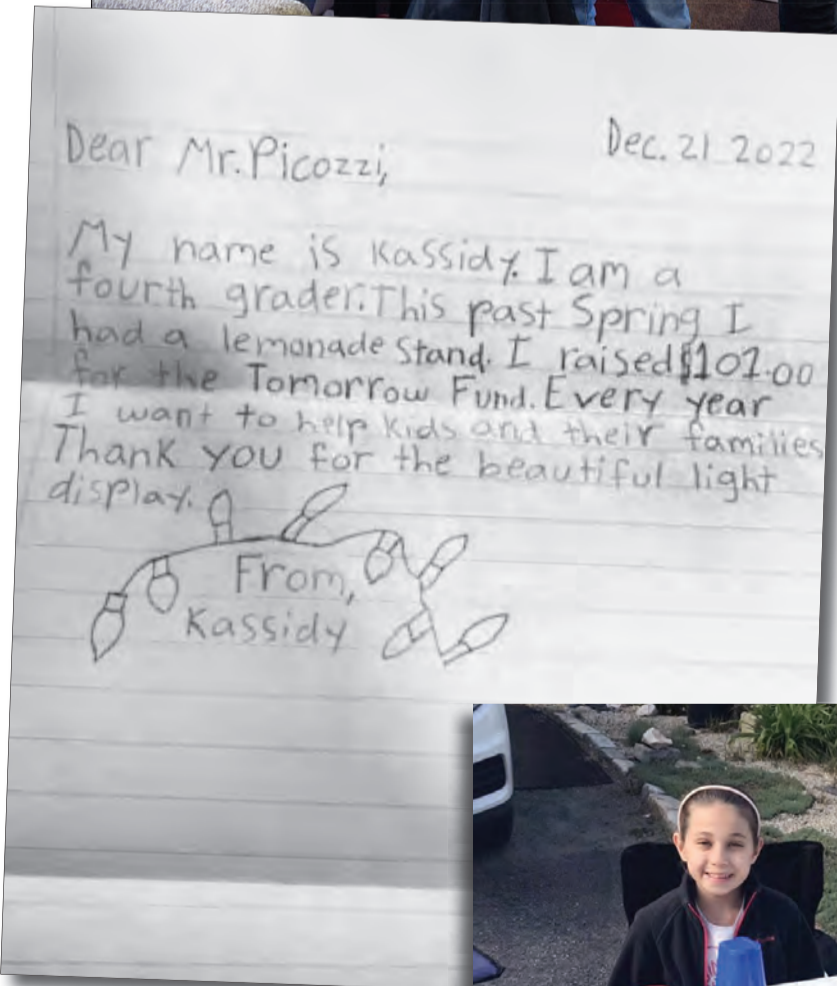 Dear Mr. Picozzi,
Dec. 21 2022
My name is Kassidy. I am a
fourth grader. This past Spring I
had a lemonade Stand. I raised $101.00
for the Tomorrow Fund. Every year
I want to help kids and their families
Thank you for the beautiful light
display.
From,
Kassidy